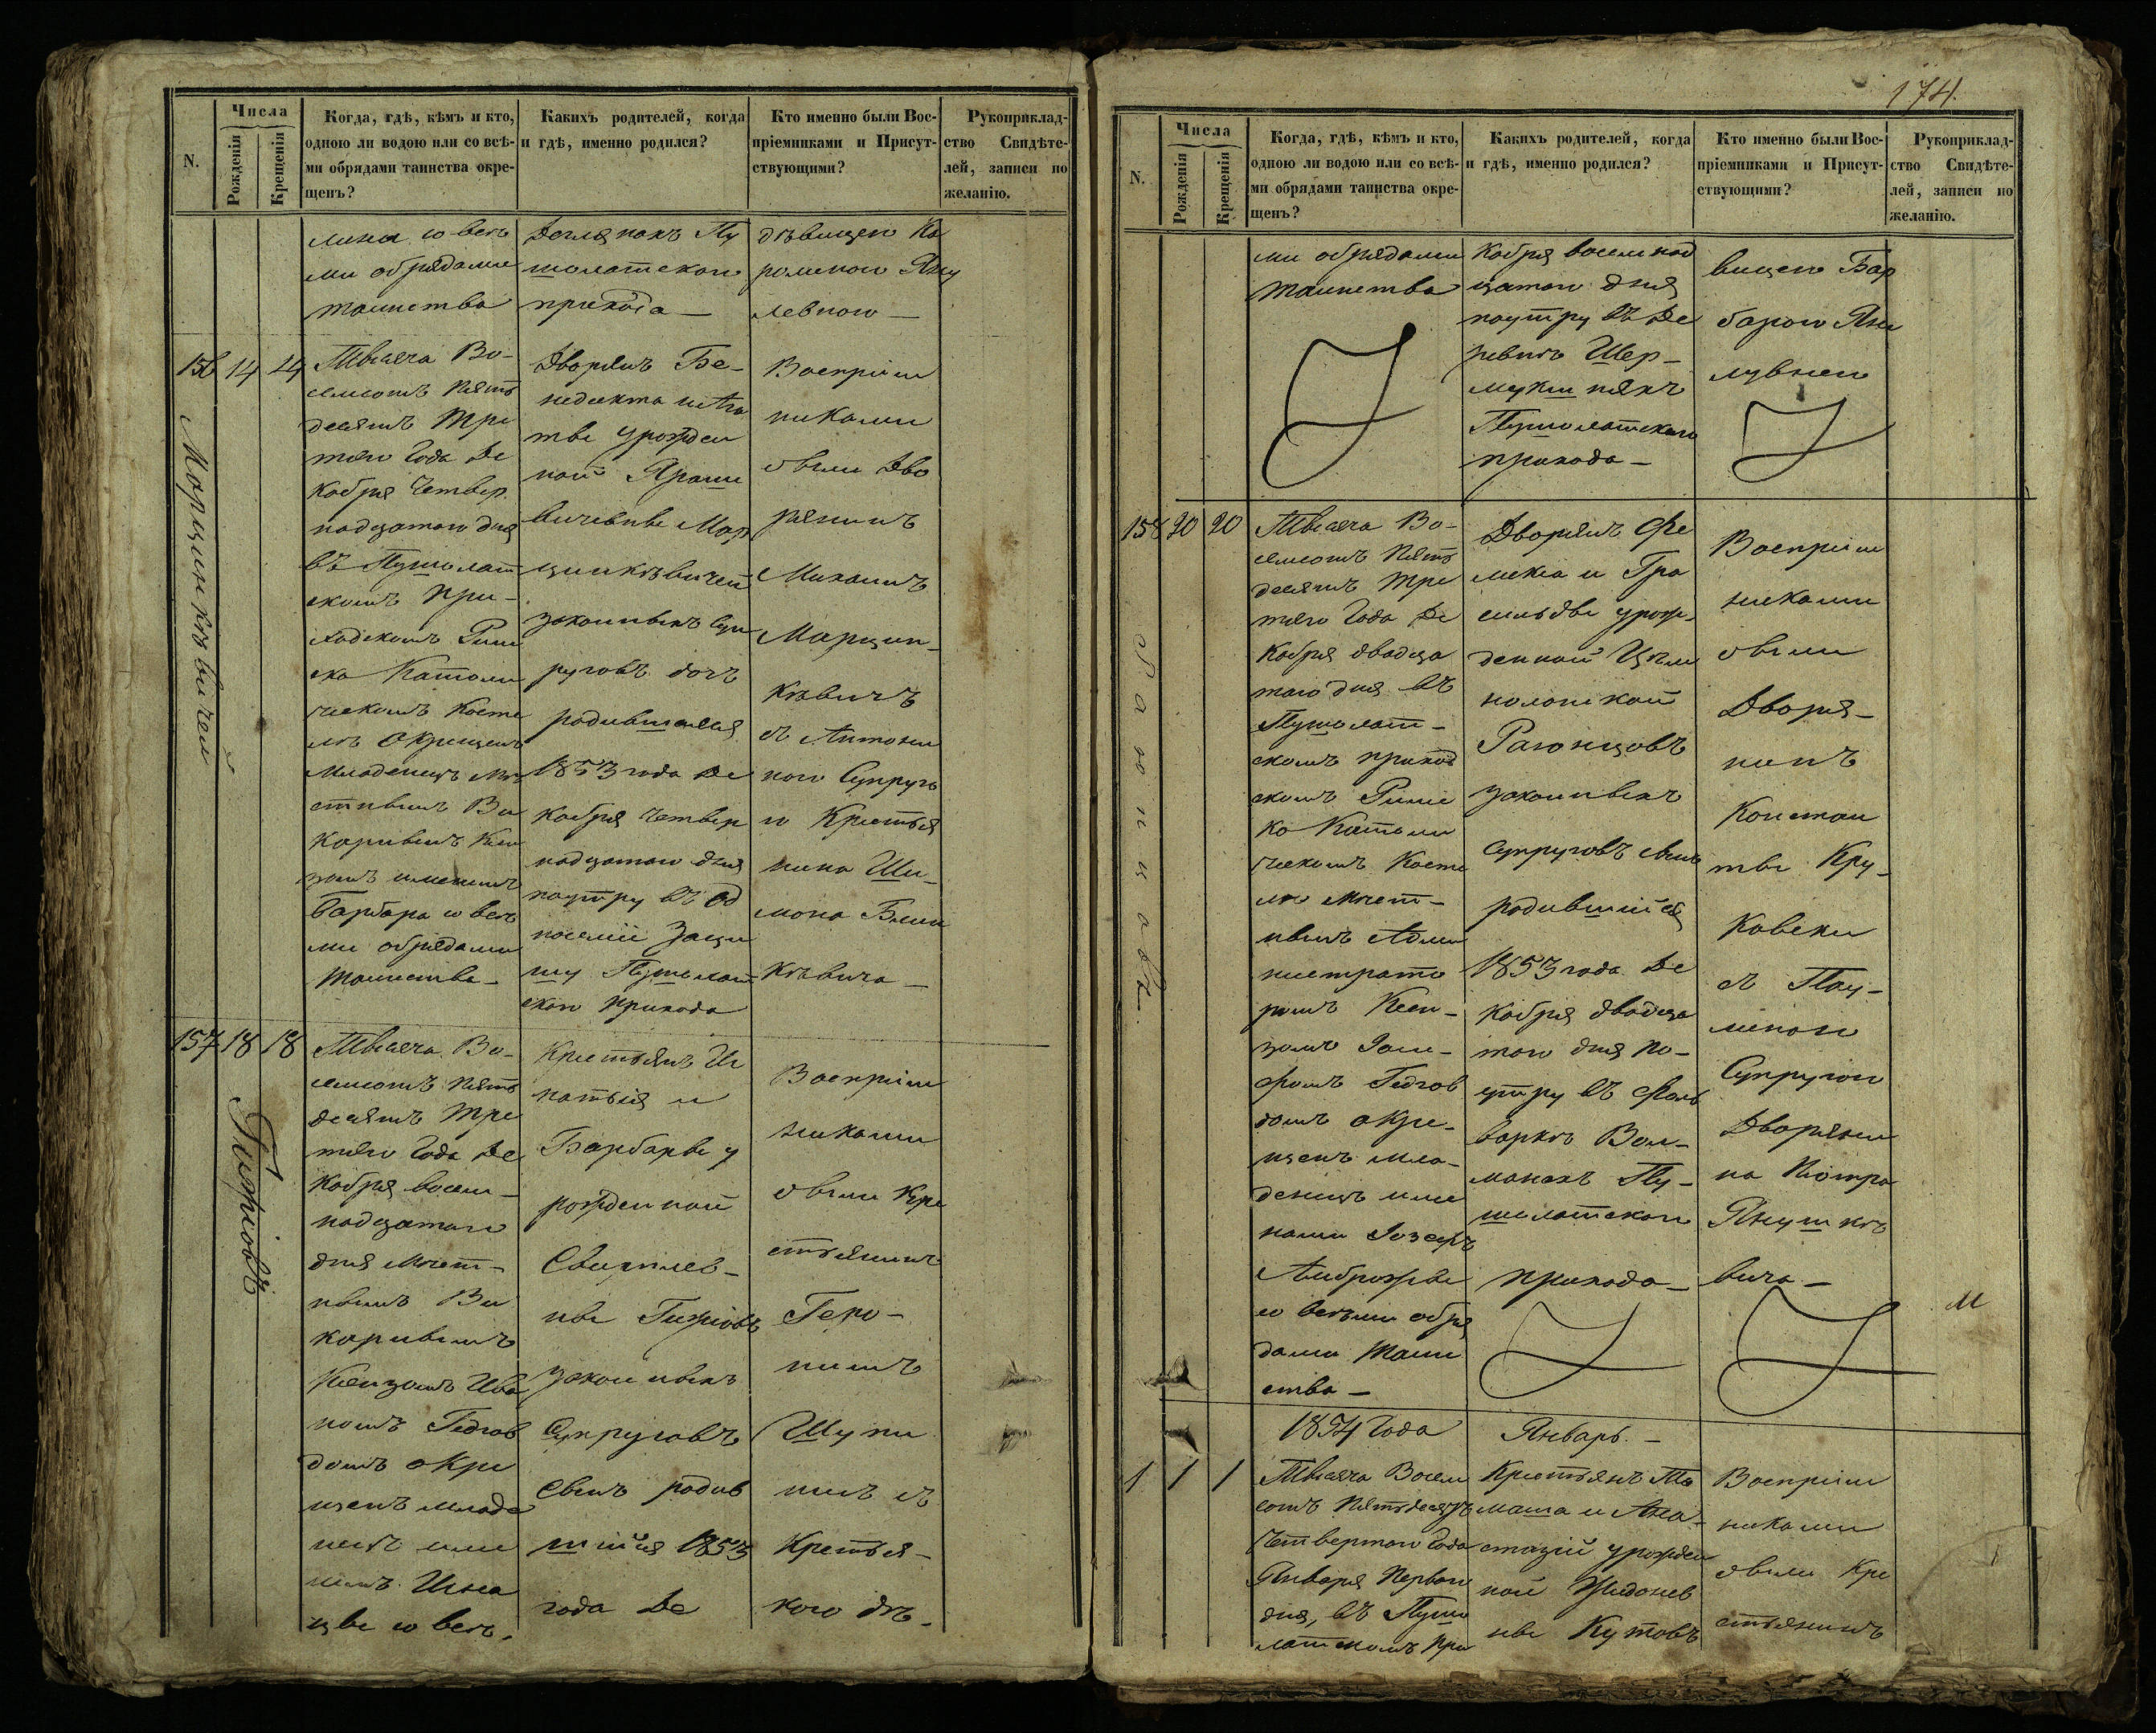 N.
Числа
Рожденія
Крещенія
Когда, гдѣ, кѣмъ и кто,
одною ли водою или со всѣ-
ми обрядами таинства окре-
щенъ?
Какихъ родителей, когда
и гдѣ, именно родился?
Кто именно были Вос-
пріемниками и Присут-
ствующими?
Рукоприклад-
ство Свидѣте-
лей, записи по
желанію.
со всѣ
ми обрядами
таинства
Пу
шолатскаго
прихода —
дѣвицею Ка
ролиною Яну
левною —
156 14 14
Тысяча Во-
семьсотъ пять
десятъ тре
тяго года де
кабря четвер
надцатаго дня
въ Пушолат
скомъ при-
ходскомъ Рим
ско Католи
ческомъ косте
лѣ окрещенъ
младенецъ мѣ
стнымъ Ви
карнымъ Ксен
дзомъ именемъ
Барбара со всѣ
ми обрядами
таинства —
Дворянъ Бе-
недикта и Ага
ты урожден
ной Яроше
вичевны Мар
цинкѣвичей
законныхъ суп
руговъ дочь
родившаяся
1853 года де
кабря четвер
надцатаго дня
поутру въ од
носеліи
Пушолат
скаго прихода
Воспріем
никами
были Дво
рянинъ
Михаилъ
Марцин-
кѣвичъ
съ Антони
ною Супругою
Крестья
нина Ши-
мона
кѣвича —
Марцинкѣвичей
157 18 18
Тысяча Во-
семьсотъ пять
десятъ тре
тяго года де
кабря восем-
надцатаго
дня мѣст-
нымъ Ви
карнымъ
Ксендзомъ Ива
номъ Гедгов
домъ окре
щенъ младе
нецъ име
немъ Игна
цы со всѣ-
Крестьянъ Иг
натыя и
Барбары у
рожденной
Гижіовъ
законныхъ
Супруговъ
сынъ родив
шійся 1853
года де
Воспріем
никами
были Кре
стьянинъ
Геро-
нимъ
Шупи
съ
Крестья-
кою дѣ-
Гижіовъ
174.
N.
Числа
Рожденія
Крещенія
Когда, гдѣ, кѣмъ и кто,
одною ли водою или со всѣ-
ми обрядами таинства окре-
щенъ?
Какихъ родителей, когда
и гдѣ, именно родился?
Кто именно были Вос-
пріемниками и Присут-
ствующими?
Рукоприклад-
ство Свидѣте-
лей, записи по
желанію.
ми обрядами
таинства
кабря восемнад
цатаго дня
поутру въ де
ревнѣ Шер-
мукшняхъ
Пушолатскаго
прихода —
вицею Бар
барою Яну
левною
158 20 20
Тысяча Во-
семьсотъ пять
десятъ тре
тяго года де
кабря двадца
таго дня въ
Пушолат-
скомъ приход
скомъ Рим
ко Католи
ческомъ косте
лѣ мѣст-
нымъ Адми
нистрато
ромъ Ксен-
дзомъ Іоси-
фомъ Гедгов
домъ окре-
щенъ мла-
денецъ име
нами Іозефъ
Амброжы
со всѣми обря
дами таин
ства —
Дворянъ Фе
ликса и Гра
сильды урож-
денной
Рагонцовъ
законныхъ
супруговъ сынъ
родившійся
1853 года де
кабря двадца
таго дня по-
утру въ Фоль
варкѣ Вай-
Пу-
шолатскаго
прихода —
Воспріем
никами
были
Дворя-
нинъ
Констан
ты Кру-
ковски
съ Пау-
линою
Супругою
Дворяни
на Піотра
Янушкѣ
вича —
Рагонцовъ.
1854 года
Январь. —
1 1 1
Тысяча восем
сотъ пятьдесятъ
четвертаго года
Января перваго
дня, въ Пушо
латскомъ при
Крестьянъ То
маша и Ана-
стазіи урожден
ной Жидонев
ны Кутовъ
Воспріем
никами
были Кре
стьянинъ